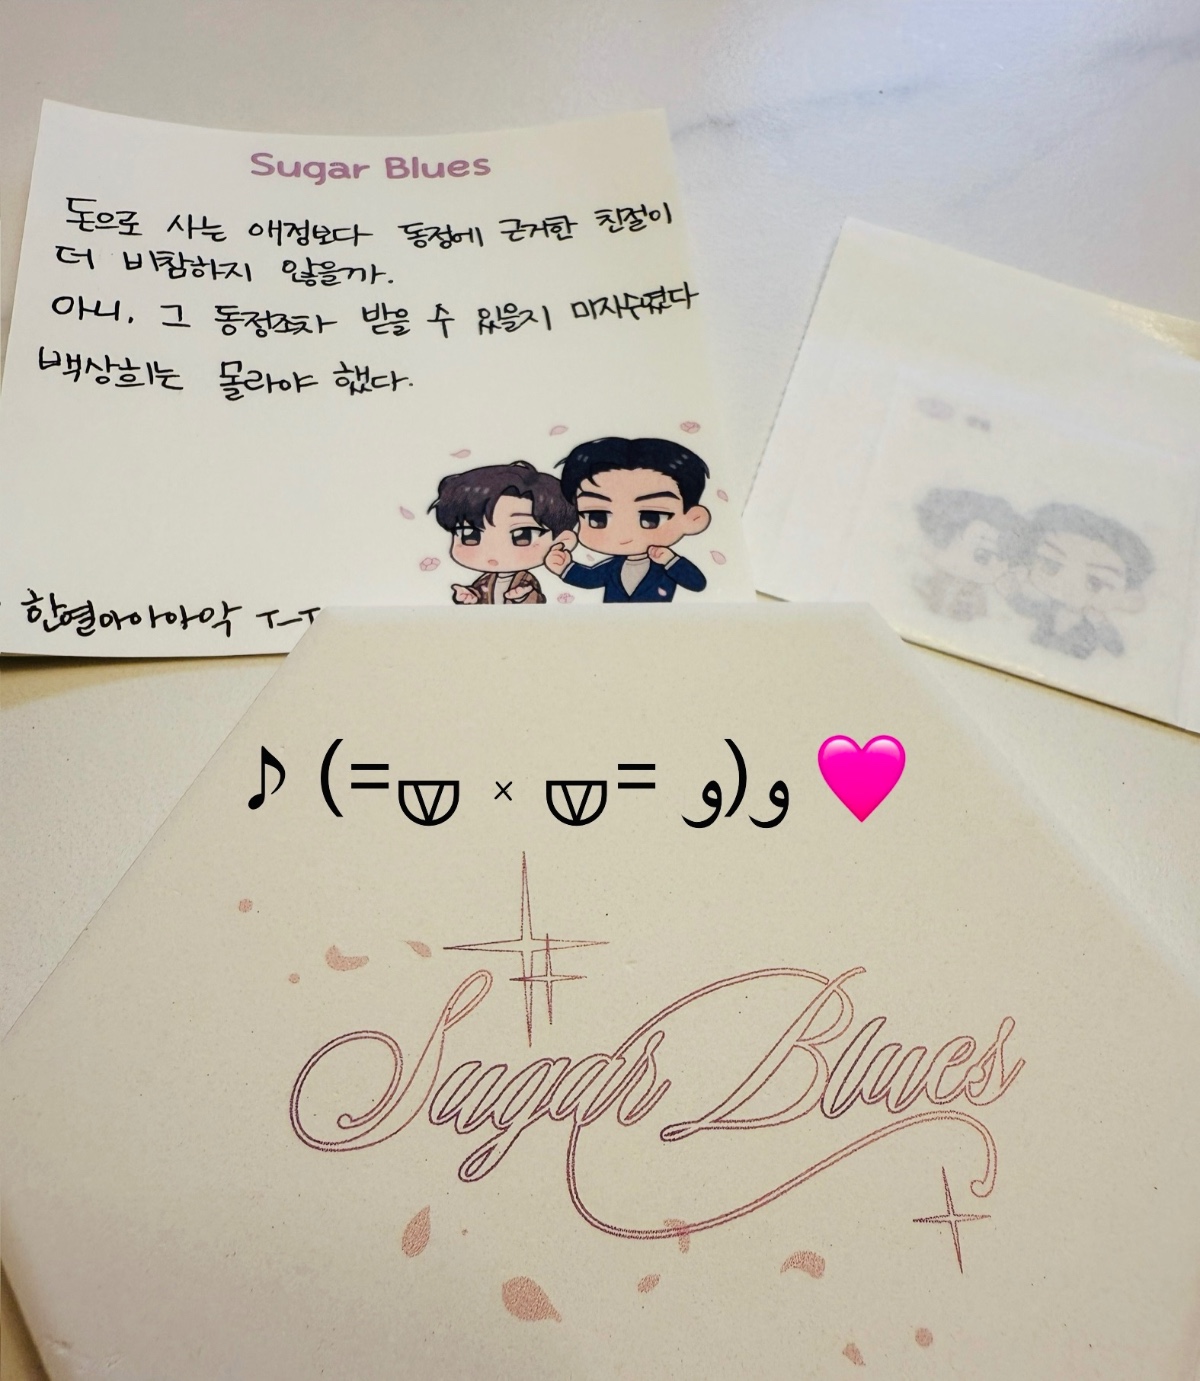 Sugar Blues
돈으로 사는 애정보다 동정에 근거한 친절이
더 비참하지 않을까.
아니, 그 동정조차 받을 수 있을지 미지수였다
백상희는 몰라야 했다.
한열아아아악 ㅜㅡㅜ
♪ (=ᇦ × ᇦ= و)و 🩷
Sugar Blues